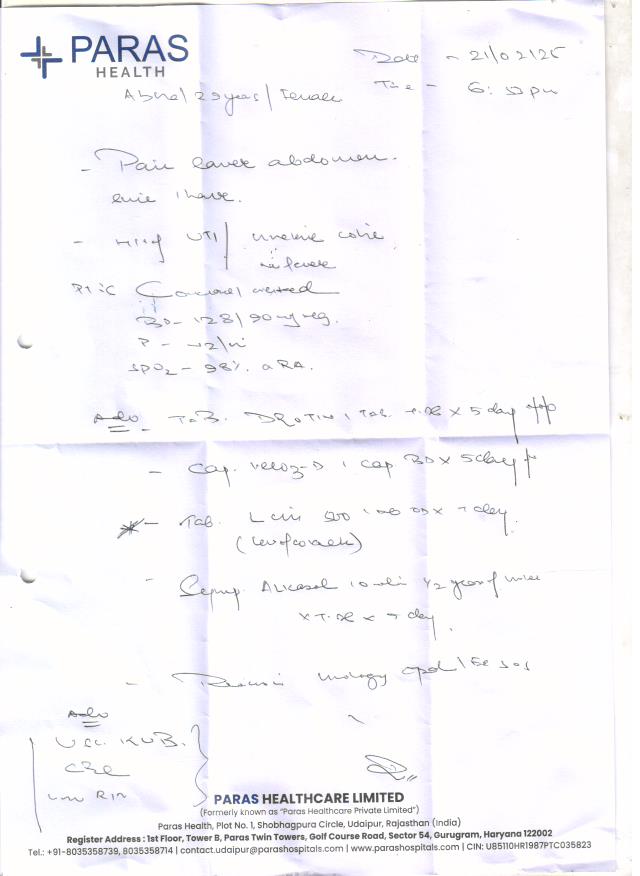 PARAS
HEALTH
Date - 21/02/25
Time - 6:
29 years / Female
- Pain lower abdomen.
since 1 hour.
- H/o UTI / ureteric colic
no fever
Pt is Conscious/ oriented
BP - 128/90 mmHg.
P -
SPO2 - 98% @RA.
Adv - Tab. DROTIN 1 Tab. x 5 day
- Cap. Veloz-D 1 cap BD x 5 day
* - Tab. L cin 500 1 tab OD x 7 day.
(Levofloxacin)
- Syrup. Alkasol 10 ml in 1/2 glass of water
x T.D x 7 day.
- Review in urology opd / ER SOS
Adv
USG. KUB.
CBC
urine R/M
PARAS HEALTHCARE LIMITED
(Formerly known as "Paras Healthcare Private Limited")
Paras Health, Plot No. 1, Shobhagpura Circle, Udaipur, Rajasthan (India)
Register Address : 1st Floor, Tower B, Paras Twin Towers, Golf Course Road, Sector 54, Gurugram, Haryana 122002
Tel.: +91-8035358739, 8035358714 | contact.udaipur@parashospitals.com | www.parashospitals.com | CIN: U85110HR1987PTC035823